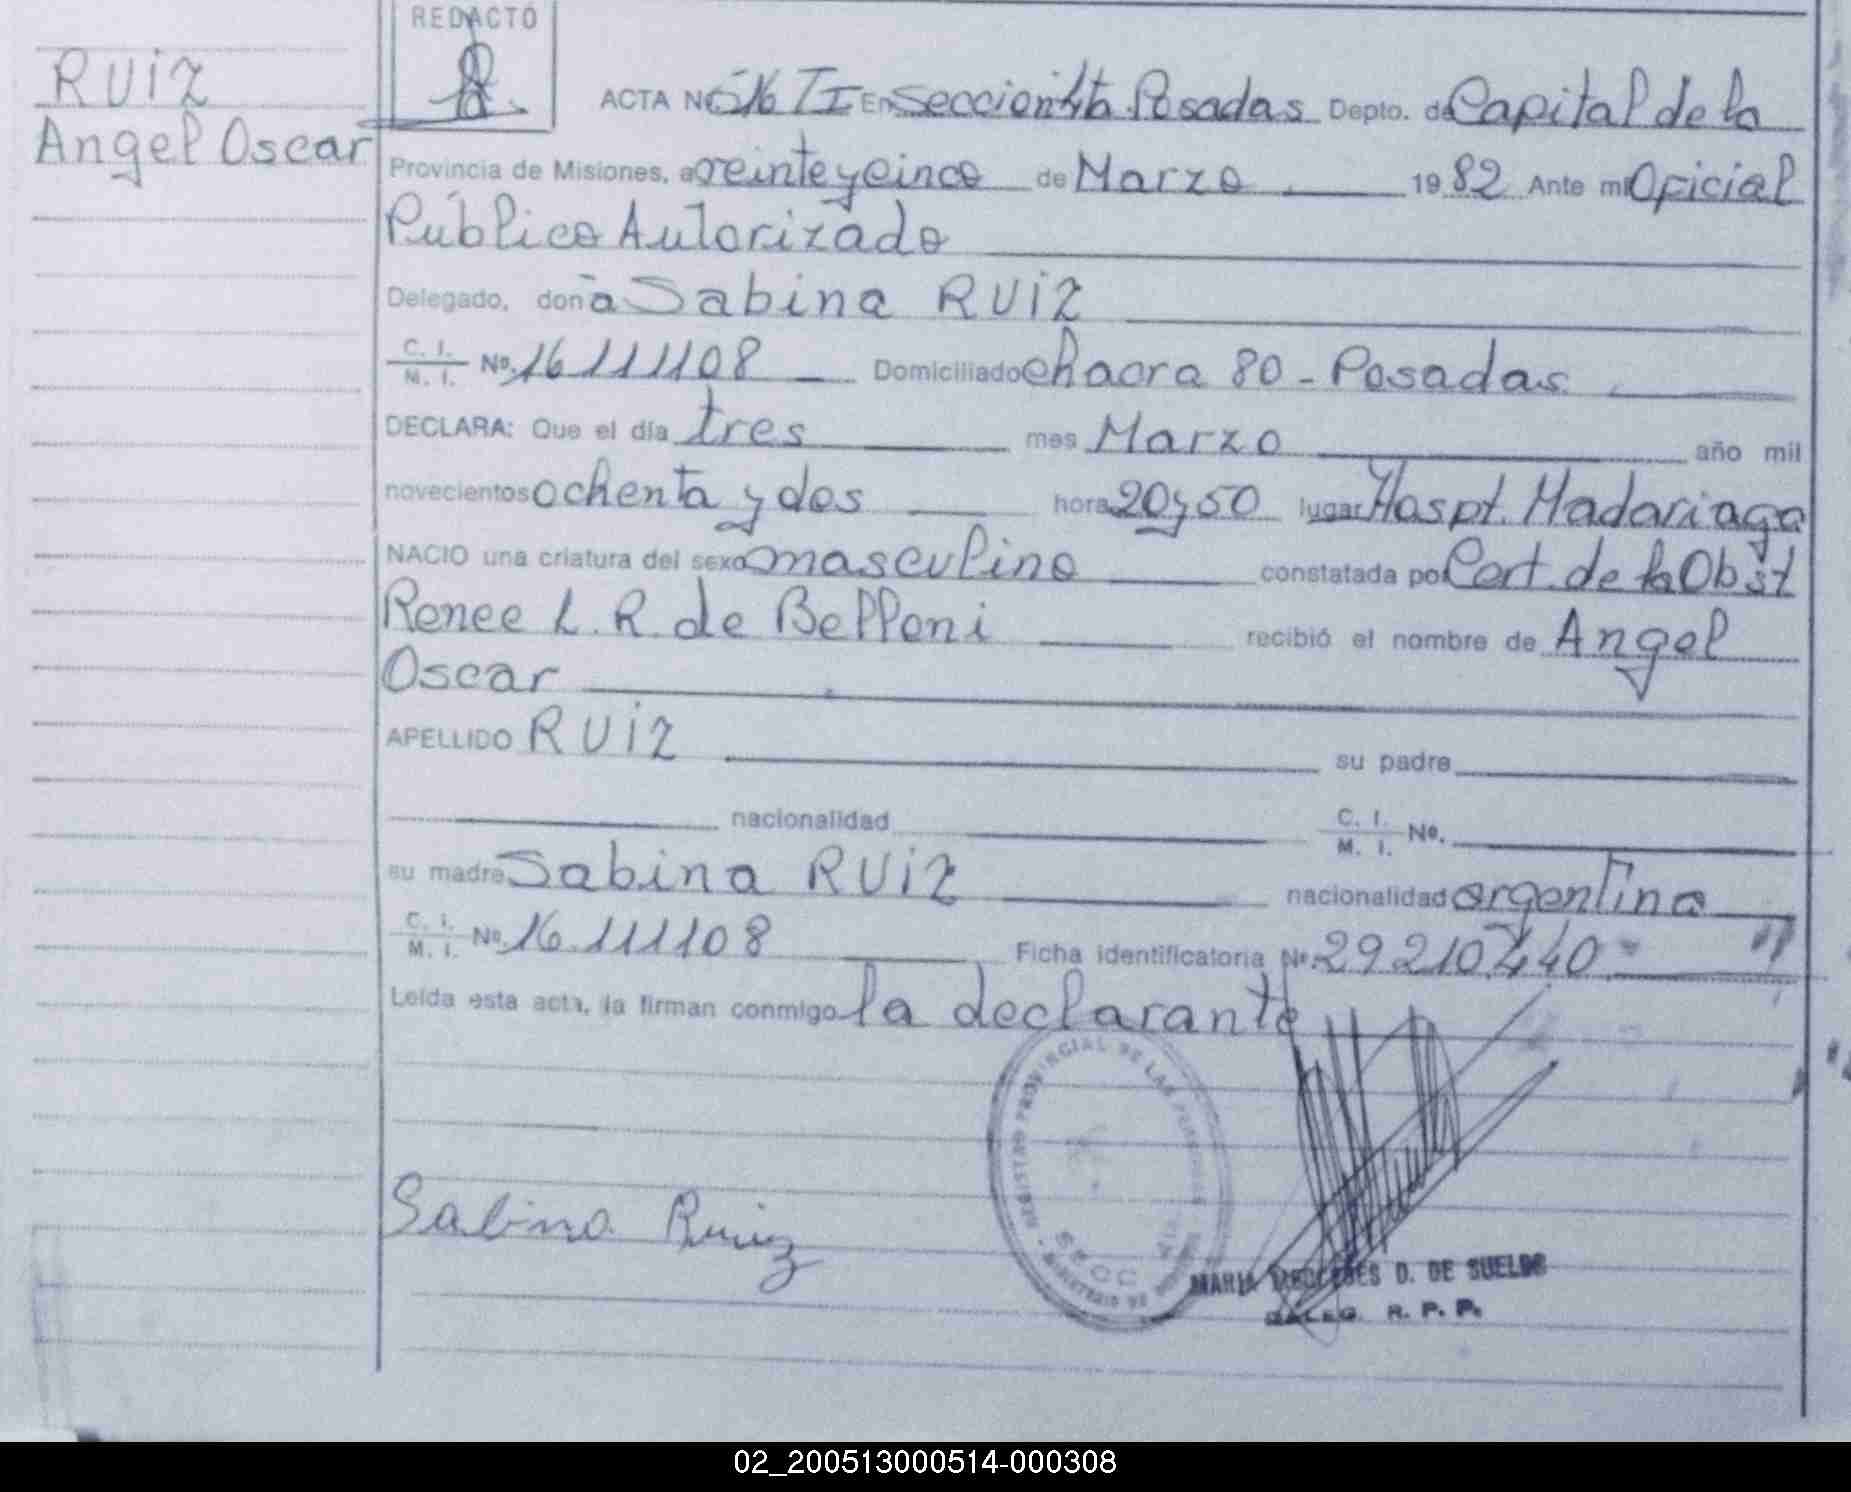 REDACTÓ
RUiZ
Angel Oscar
ACTA Nº 516 TI En Seccion 4ta Posadas Depto. de Capital de la
Provincia de Misiones, a veinte y cinco de Marzo 1982 Ante mi Oficial
Público Autorizado
Delegado, doña Sabina RUiZ
C. I. / M. I. Nº. 16.111.108 Domiciliado Chacra 80 - Posadas
DECLARA: Que el día tres mes Marzo año mil
novecientos ochenta y dos hora 20 y 50 lugar Hospt. Madariaga
NACIO una criatura del sexo masculino constatada por Cert. de la Obst
Renee L. R. de Belloni recibió el nombre de Angel
Oscar
APELLIDO RUiZ su padre
nacionalidad C. I. / M. I. Nº.
su madre Sabina RUiZ nacionalidad argentina
C. I. / M. I. Nº. 16.111108 Ficha identificatoria Nº. 29210.440
Leída esta acta, la firman conmigo la declarante
REGISTRO PROVINCIAL DE LAS PERSONAS
Sabina Ruiz
MARIA MERCEDES D. DE SUELDO
DELEG. R. P. P.
02_200513000514-000308